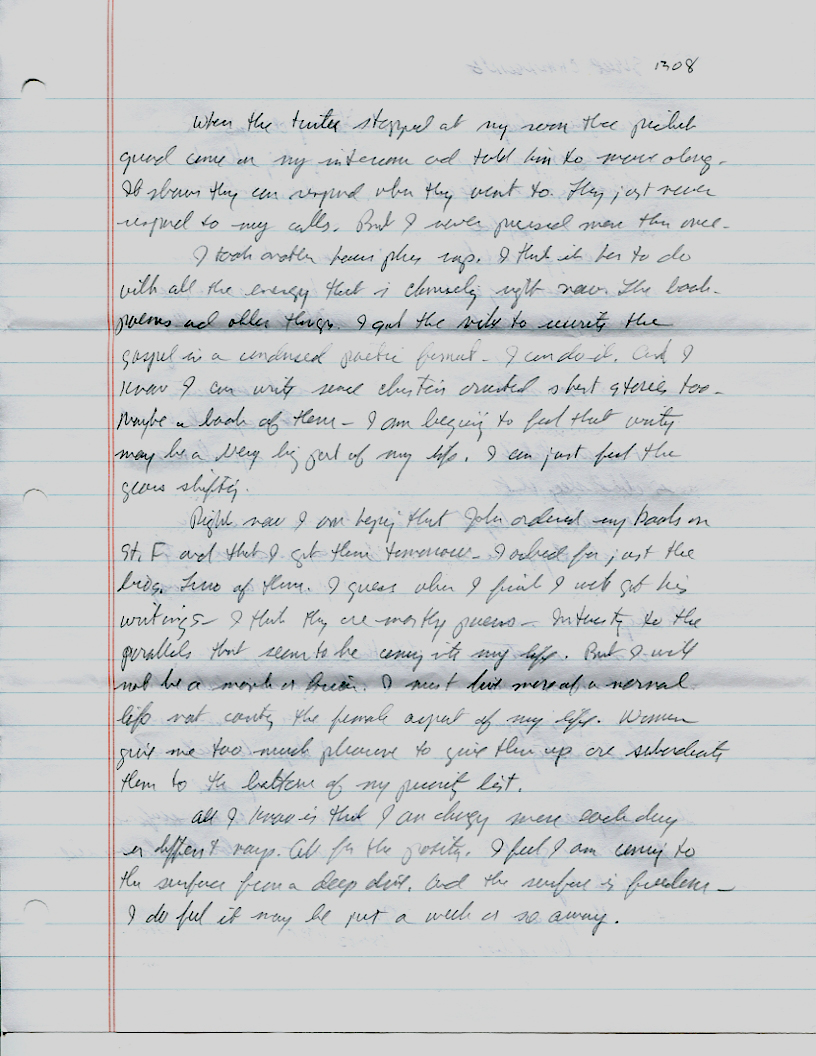 1308
When the trustee stopped at my room the picket
guard came on my intercom and told him to move along.
It shows they can respond when they want to. They just never
respond to my calls. But I never pressed more than once.
I took another hour plus nap. I think it has to do
with all the energy that is changing right now. The book-
poems and other things. I got the to rewrite the
gospel in a condensed poetic format - I can do it. And I
know I can write some christian oriented short stories too-
Maybe a book of them - I am beginning to feel that writing
may be a very big part of my life. I can just feel the
gears shifting.
Right now I am hoping that John ordered my books on
St. F and that I get them tomorrow - I asked for just the
bios. Two of them. I guess when I finish I will get his
writings - I think they are mostly poems - Interesting to the
parallels that seem to be coming into my life. But I will
not be a monk or . I must live more of a normal
life not the female aspect of my life. Women
give me too much pleasure to give them up or subordinate
them to the bottom of my priority list.
All I know is that I am changing more each day
in different ways. All for the positive. I feel I am coming to
the surface from a deep dive. And the surface is freedom -
I do feel it may be just a week or so away.